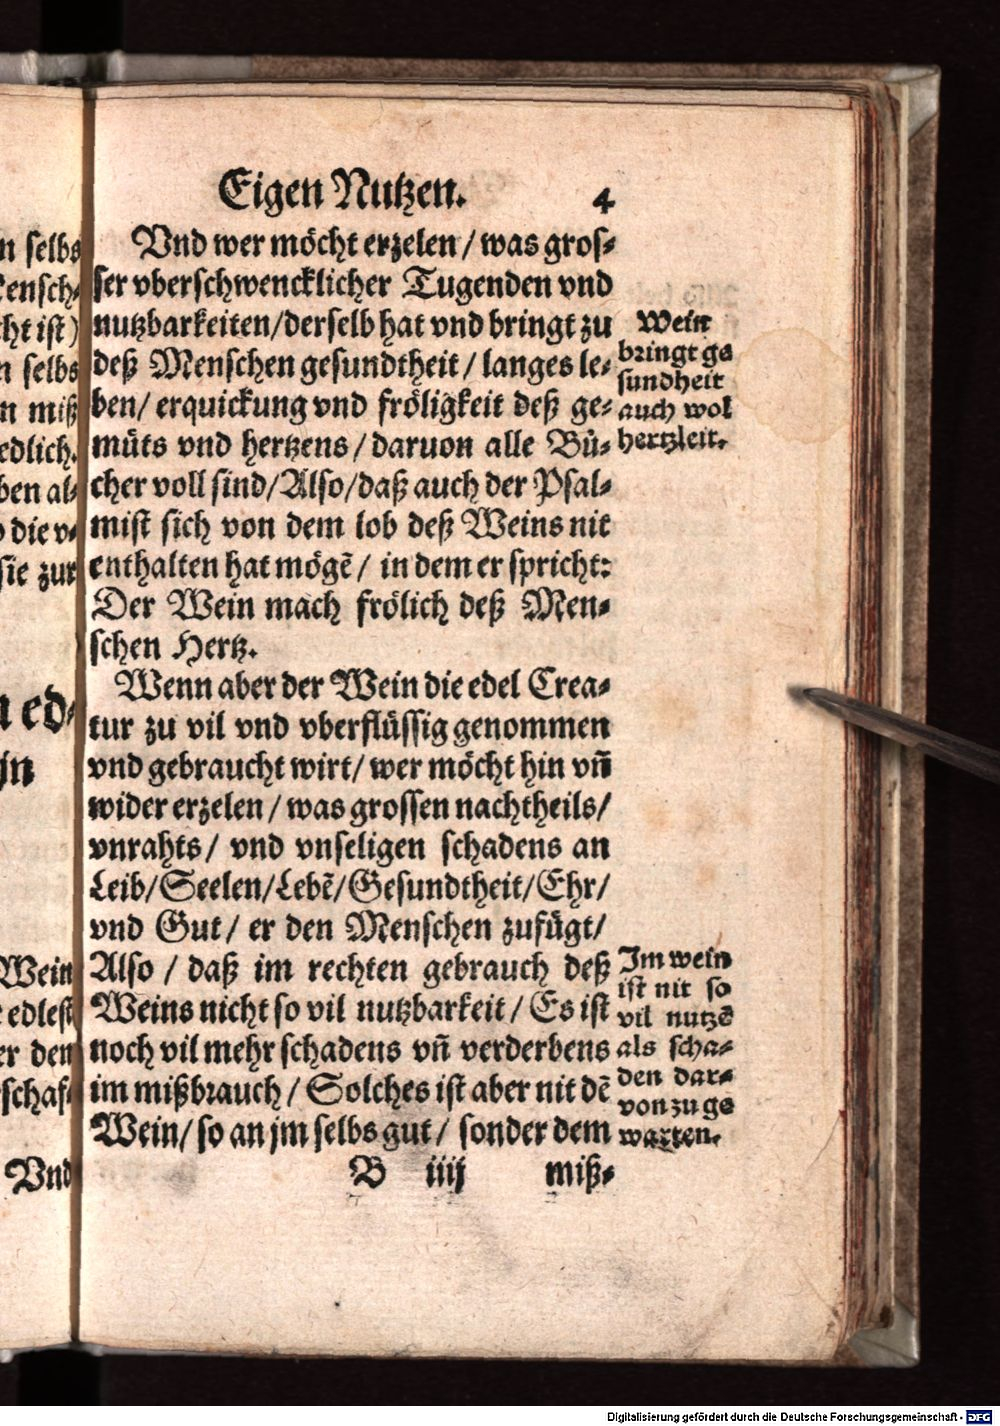 Eigen Nutzen. 4
Vnd wer möcht erzelen / was gros-
ser vberschwencklicher Tugenden vnd
nutzbarkeiten/derselb hat vnd bringt zu
deß Menschen gesundtheit / langes le-
ben/ erquickung vnd fröligkeit deß ge-
müts vnd hertzens / daruon alle Bü-
cher voll sind/Also/daß auch der Psal-
mist sich von dem lob deß Weins nit
enthalten hat mögẽ / in dem er spricht:
Der Wein mach frölich deß Men-
schen Hertz.
Wein
bringt ge
sundheit
auch wol
hertzleit.
Wenn aber der Wein die edel Crea-
tur zu vil vnd vberflüssig genommen
vnd gebraucht wirt/ wer möcht hin vñ
wider erzelen / was grossen nachtheils/
vnrahts/ vnd vnseligen schadens an
Leib/Seelen/Lebẽ/Gesundtheit/Ehr/
vnd Gut/ er den Menschen zufügt/
Also / daß im rechten gebrauch deß
Weins nicht so vil nutzbarkeit / Es ist
noch vil mehr schadens vñ verderbens
im mißbrauch / Solches ist aber nit dẽ
Wein/ so an jm selbs gut/ sonder dem
Im wein
ist nit so
vil nutzẽ
als scha-
den dar-
von zu ge
warten.
B iiij miß-
n selbs
ensch-
ht ist)
n selbs
n miß
edlich.
ben al-
die v-
sie zur
ed-
jn
Wein
edlest
er den
schaf-
Vnd
Digitalisierung gefördert durch die Deutsche Forschungsgemeinschaft - DFG